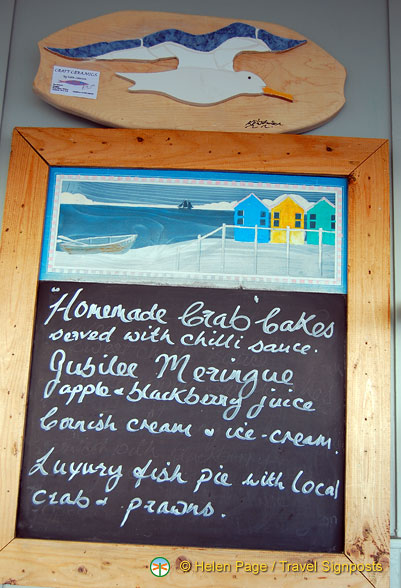 CRAFT CERAMICS
"Homemade Crab" Cakes
served with chilli sauce.
Jubilee Meringue
apple & blackberry juice
Cornish cream & ice-cream.
Luxury fish pie with local
crab & prawns.
© Helen Page / Travel Signposts